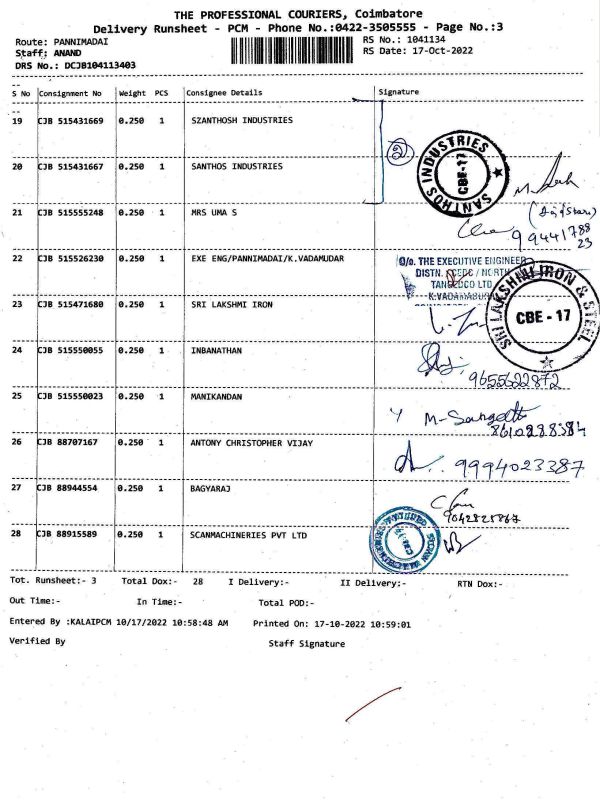 THE PROFESSIONAL COURIERS, Coimbatore
Delivery Runsheet - PCM - Phone No.:0422-3505555 - Page No.:3
Route: PANNIMADAI RS No.: 1041134
Staff: ANAND RS Date: 17-Oct-2022
DRS No.: DCJB104113403
S No Consignment No Weight PCS Consignee Details Signature
19 CJB 515431669 0.250 1 SZANTHOSH INDUSTRIES
2
SANTHOS INDUSTRIES CBE-17
20 CJB 515431667 0.250 1 SANTHOS INDUSTRIES
21 CJB 515555248 0.250 1 MRS UMA S
99441788
23
22 CJB 515526230 0.250 1 EXE ENG/PANNIMADAI/K.VADAMUDAR
O/o. THE EXECUTIVE ENGINEER
DISTN. / NORTH
TANGEDCO LTD
23 CJB 515471680 0.250 1 SRI LAKSHMI IRON
SRI LAKSHMI IRON & STEEL CBE - 17
24 CJB 515550055 0.250 1 INBANATHAN
9655622872
25 CJB 515550023 0.250 1 MANIKANDAN
M-Sangeetha
8610288384
26 CJB 88707167 0.250 1 ANTONY CHRISTOPHER VIJAY
9994023387
27 CJB 88944554 0.250 1 BAGYARAJ
28 CJB 88915589 0.250 1 SCANMACHINERIES PVT LTD
Tot. Runsheet:- 3 Total Dox:- 28 I Delivery:- II Delivery:- RTN Dox:-
Out Time:- In Time:- Total POD:-
Entered By :KALAIPCM 10/17/2022 10:58:48 AM Printed On: 17-10-2022 10:59:01
Verified By Staff Signature